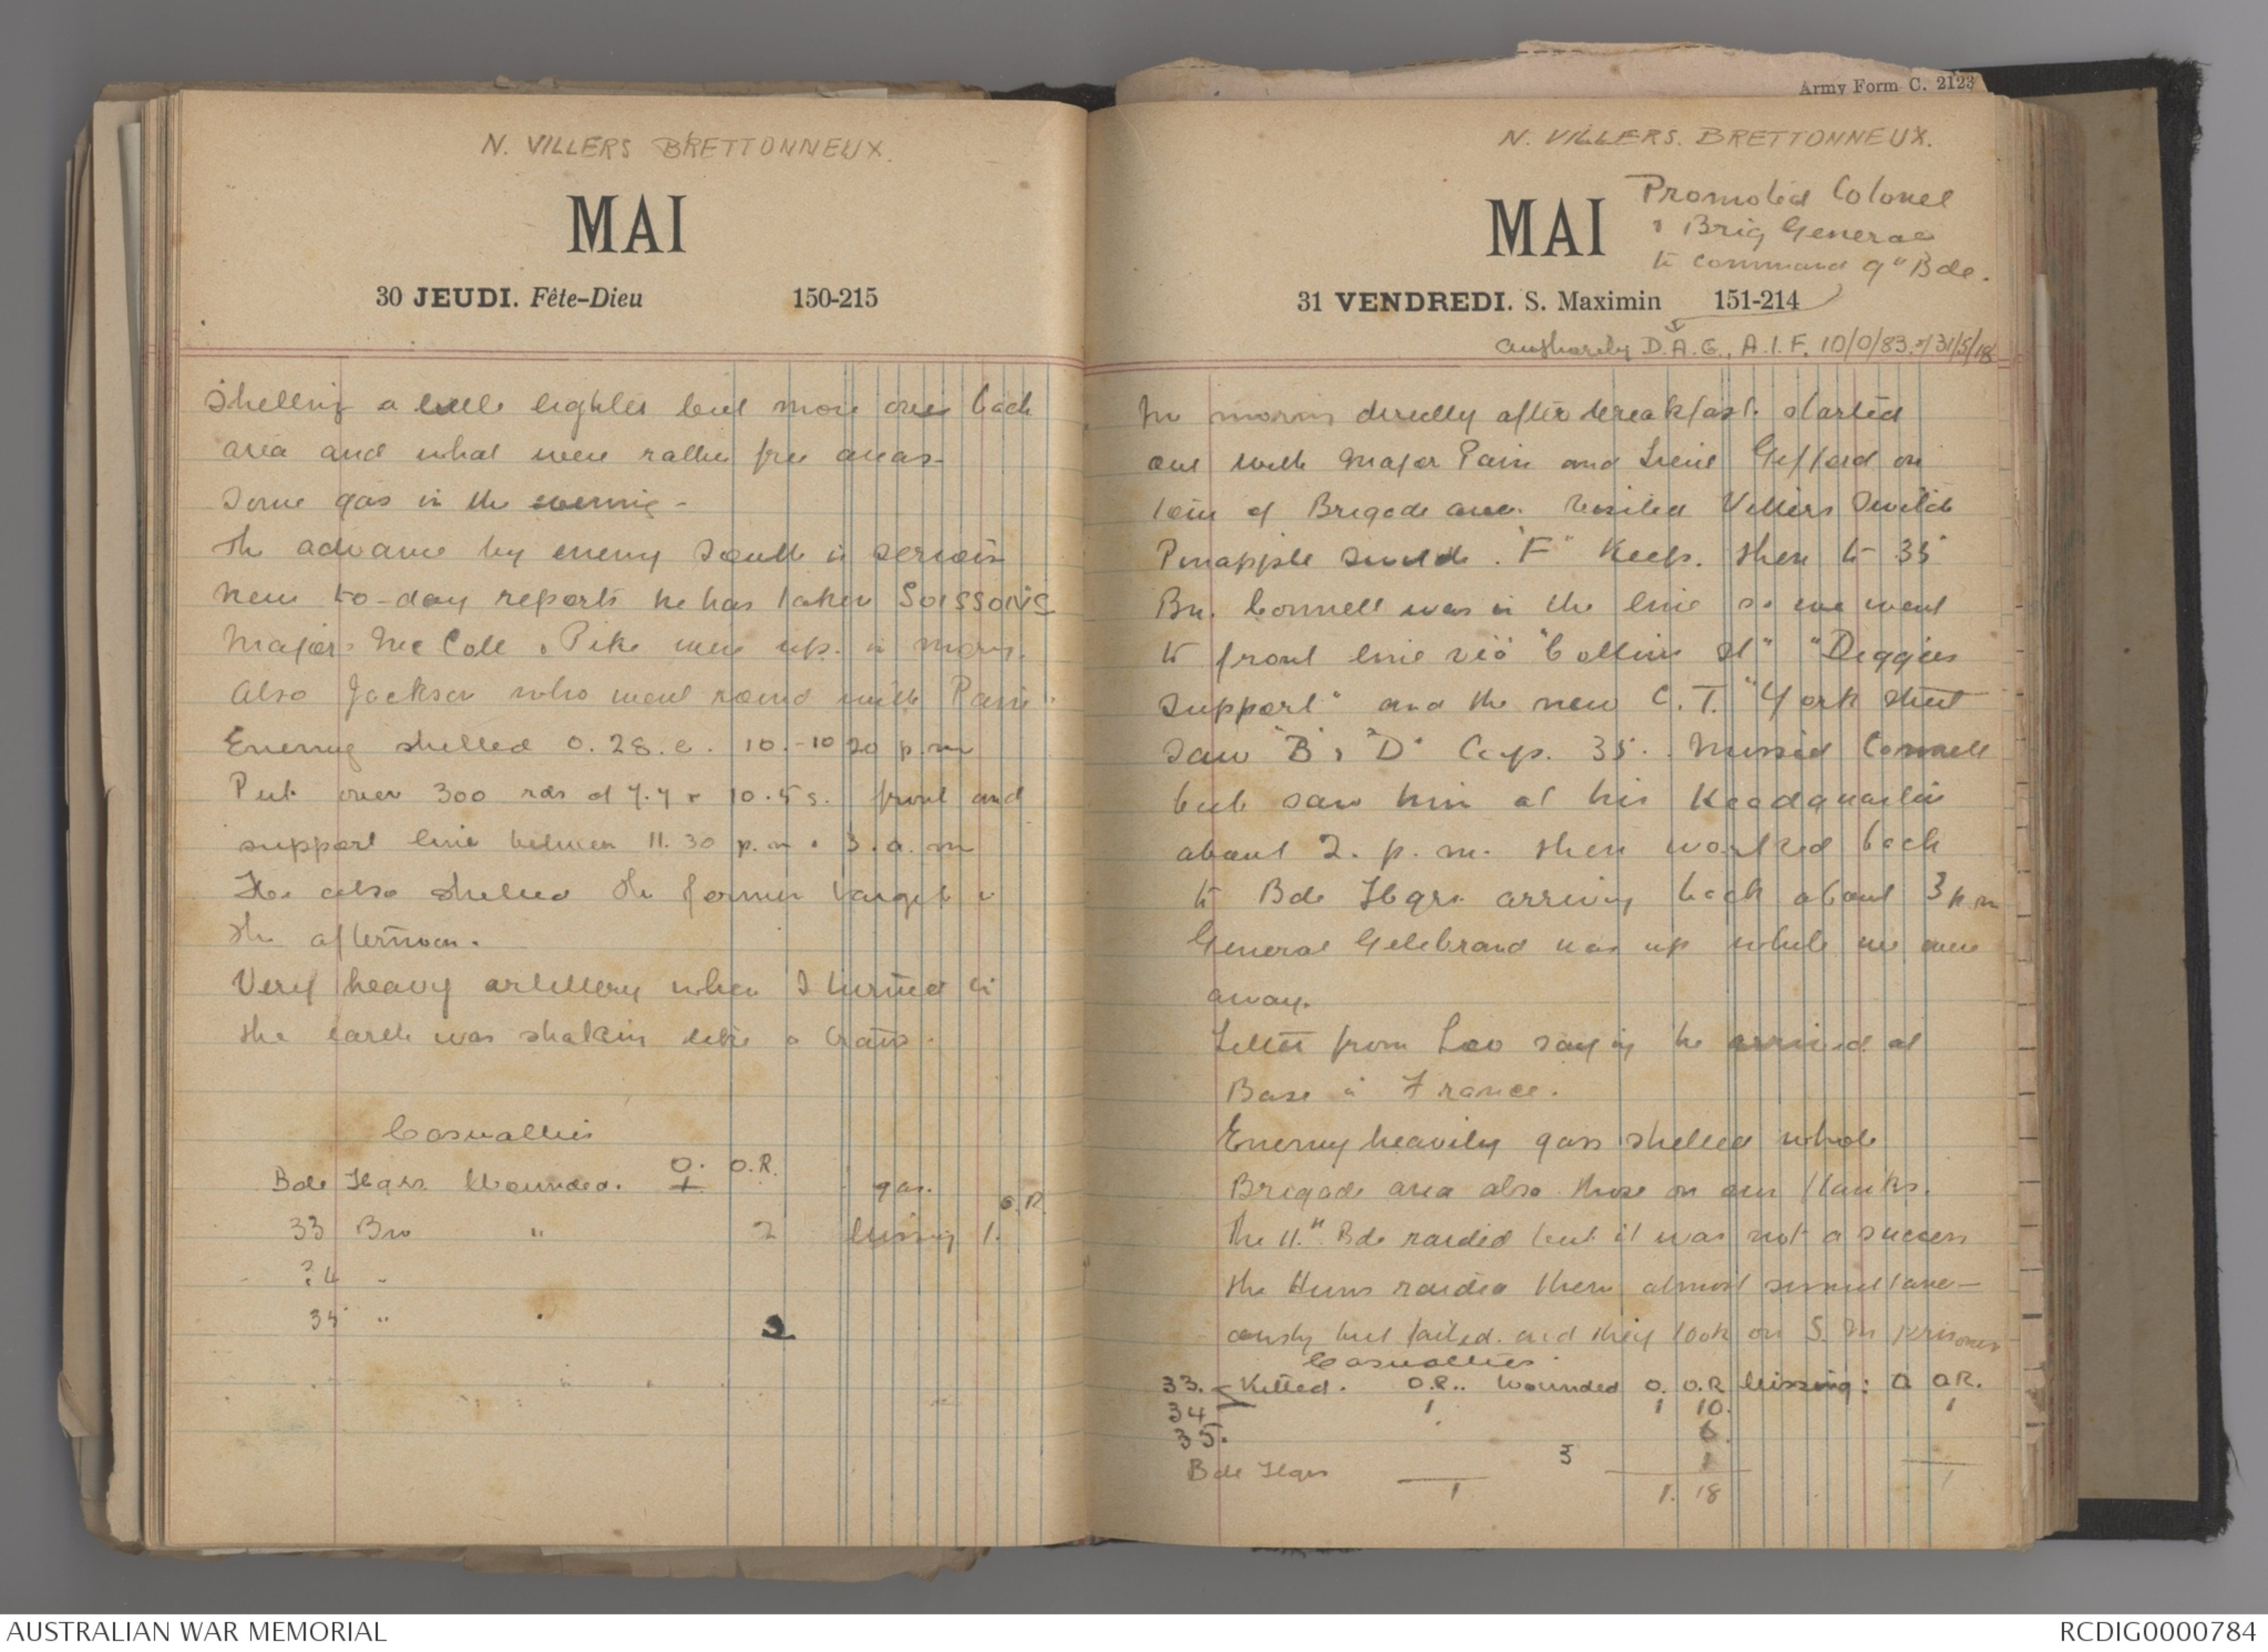 N. VILLERS BRETTONNEUX.
MAI
30 JEUDI. Fête-Dieu 150-215
Shelling a little lighter but more over back
area and what were rather free areas.
Some gas in the evening -
The advance by enemy South is serious
News to-day reports he has taken SOISSONS
Majors McColl & Pike were up in morn.
Also Jackson who went round with Pain.
Enemy shelled O.28.c. 10.-10 20 p.m
Put over 300 rds of 7.7 & 10.5s. front and
support line between 11.30 p.m & 3.a.m
He also shelled the former target in
the afternoon.
Very heavy artillery when I turned in
the earth was shaking like a
Casualties
O. O.R.
Bde Hqrs. Wounded. 1 gas. O.R.
33 Bn " 2 Missing 1.
34 "
35 " " 2
Army Form C. 2123
N. VILLERS. BRETTONNEUX.
MAI
Promoted Colonel
& Brig General
to command 9" Bde.
31 VENDREDI. S. Maximin 151-214
Authority D.A.G., A.I.F. 10/0/83. of 31/5/18
In morning directly after breakfast started
out with Major Pain and Lieut Gifford on
tour of Brigade area. Visited Villers Switch
Pinapple Switch. "F" Keep. then to 35
Bn. Connell was in the line so we went
to front line via "Collins St" "Diggers
Support" and the new C.T. "York Street
Saw "B" & "D" Coys. 35. Missed Connell
but saw him at his Headquarters
about 2. p.m. then walked back
to Bde Hqrs. arriving back about 3 p.m
General Gelibrand was up while we were
away.
Letter from Leo saying he arrived at
Base in France.
Enemy heavily gas shelled whole
Brigade area also those on our flanks.
The 11." Bde raided but it was not a success
the Huns raided them almost simultane-
ously but failed. and they took on S.M prisoner
Casualties.
33. Killed. O.R.. Wounded O. O.R Missing: O O.R.
34 1 1 10. 1
35. 6
Bde Hqrs 1
1 1. 18 1
AUSTRALIAN WAR MEMORIAL
RCDIG0000784